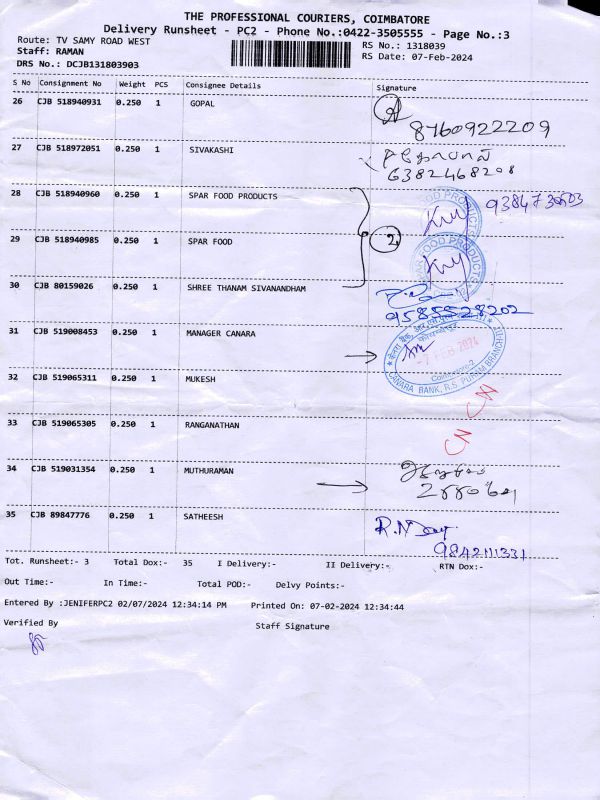 THE PROFESSIONAL COURIERS, COIMBATORE
Delivery Runsheet - PC2 - Phone No.:0422-3505555 - Page No.:3
Route: TV SAMY ROAD WEST
Staff: RAMAN
DRS No.: DCJB131803903
RS No.: 1318039
RS Date: 07-Feb-2024
S No Consignment No Weight PCS Consignee Details Signature
26 CJB 518940931 0.250 1 GOPAL
8760922209
27 CJB 518972051 0.250 1 SIVAKASHI
6382468208
28 CJB 518940960 0.250 1 SPAR FOOD PRODUCTS
29 CJB 518940985 0.250 1 SPAR FOOD
2
30 CJB 80159026 0.250 1 SHREE THANAM SIVANANDHAM
9585528202
31 CJB 519008453 0.250 1 MANAGER CANARA
FEB 2024
Coimbatore-2
CANARA BANK, R.S. PURAM BRANCH
32 CJB 519065311 0.250 1 MUKESH
CN
33 CJB 519065305 0.250 1 RANGANATHAN
CN
34 CJB 519031354 0.250 1 MUTHURAMAN
35 CJB 89847776 0.250 1 SATHEESH
9842111331
Tot. Runsheet:- 3 Total Dox:- 35 I Delivery:- II Delivery:- RTN Dox:-
Out Time:- In Time:- Total POD:- Delvy Points:-
Entered By :JENIFERPC2 02/07/2024 12:34:14 PM Printed On: 07-02-2024 12:34:44
Verified By Staff Signature